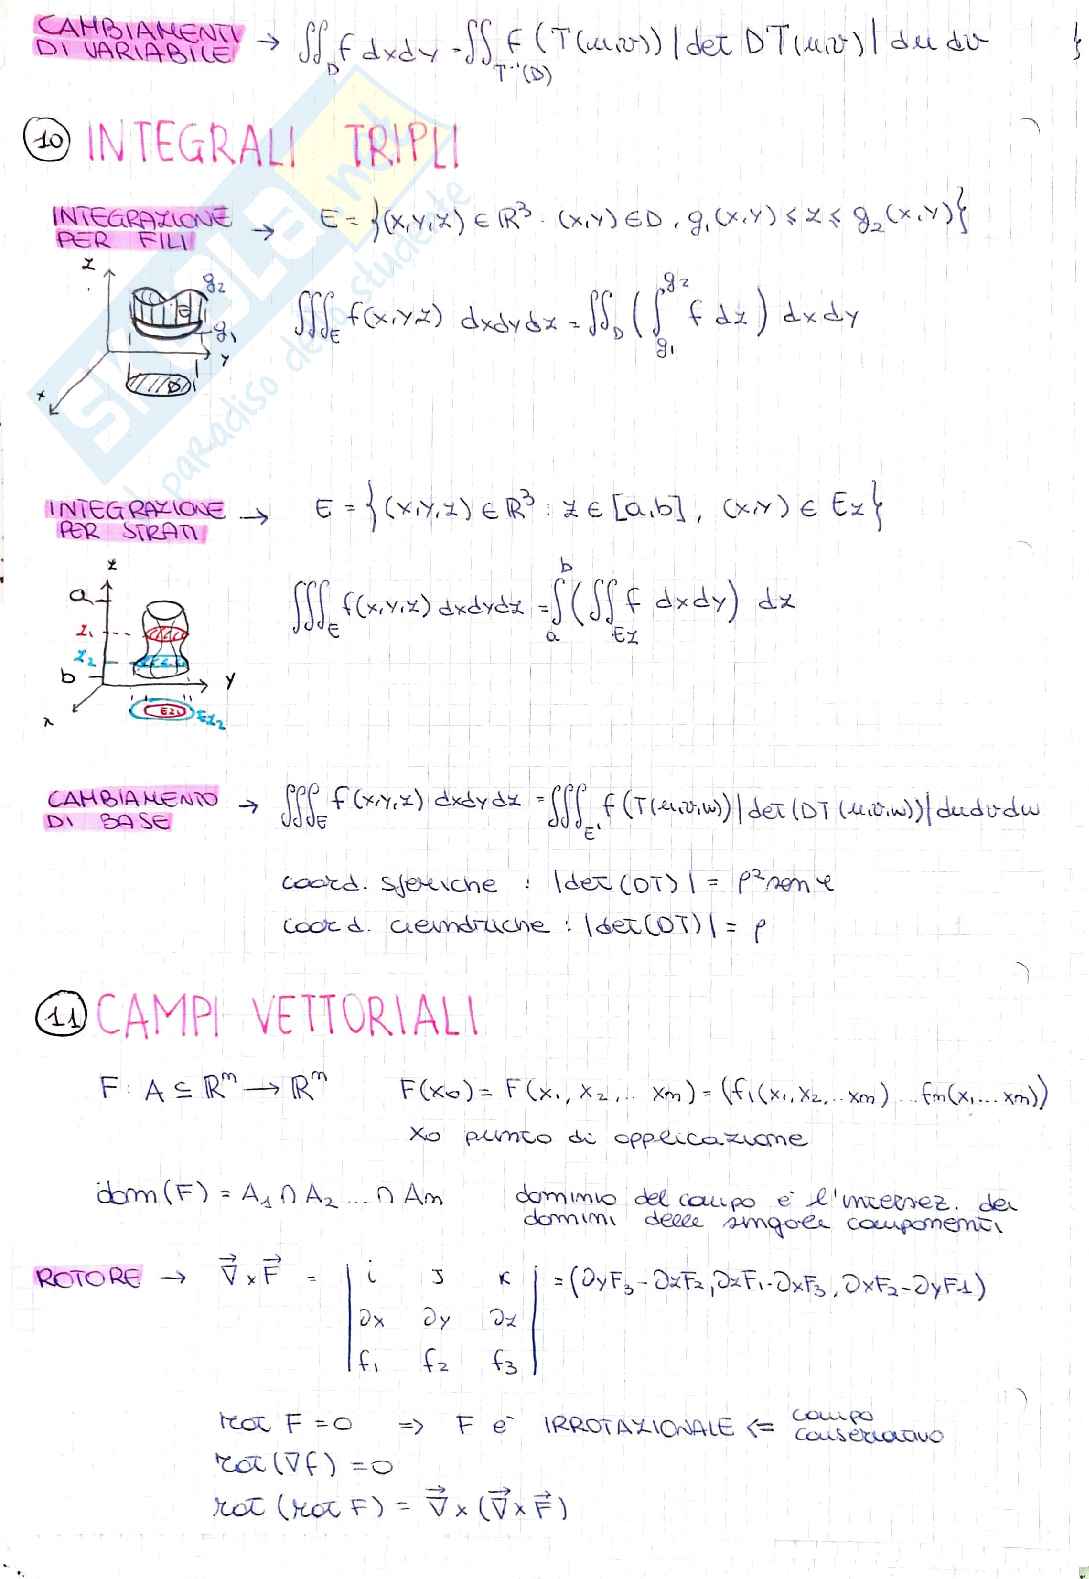 CAMBIAMENTI DI VARIABILE → ∬_D f dxdy = ∬_{T⁻¹(D)} f(T(u,v)) |det DT(u,v)| du dv
⑩ INTEGRALI TRIPLI
INTEGRAZIONE PER FILI → E = {(x,y,z) ∈ ℝ³ : (x,y) ∈ D, g₁(x,y) ≤ z ≤ g₂(x,y)}
z g₂ E g₁ y D x
∭_E f(x,y,z) dxdydz = ∬_D (∫_{g₁}^{g₂} f dz) dxdy
INTEGRAZIONE PER STRATI → E = {(x,y,z) ∈ ℝ³ : z ∈ [a,b], (x,y) ∈ Ez}
z a z₁ z₂ b y x Ez₁ Ez₂
∭_E f(x,y,z) dxdydz = ∫_a^b (∬_{Ez} f dxdy) dz
CAMBIAMENTO DI BASE → ∭_E f(x,y,z) dxdydz = ∭_{E'} f(T(u,v,w)) |det(DT(u,v,w))| dudvdw
coord. sferiche : |det(DT)| = ρ² sen φ
coord. cilindriche : |det(DT)| = ρ
⑪ CAMPI VETTORIALI
F : A ⊆ ℝⁿ → ℝⁿ F(x₀) = F(x₁, x₂, .. xn) = (f₁(x₁, x₂, .. xn) ... fn(x₁ ... xn))
x₀ punto di applicazione
dom(F) = A₁ ∩ A₂ ... ∩ An dominio del campo è l'intersez. dei
domini delle singole componenti
ROTORE → ∇⃗ x F⃗ = | i J K | = (∂yF₃ - ∂zF₂, ∂zF₁ - ∂xF₃, ∂xF₂ - ∂yF1)
∂x ∂y ∂z
f₁ f₂ f₃
rot F = 0 ⇒ F è IRROTAZIONALE ⇐ campo conservativo
rot (∇f) = 0
rot (rot F) = ∇⃗ x (∇⃗ x F⃗)
SKUOLA.net
il paradiso dello studente